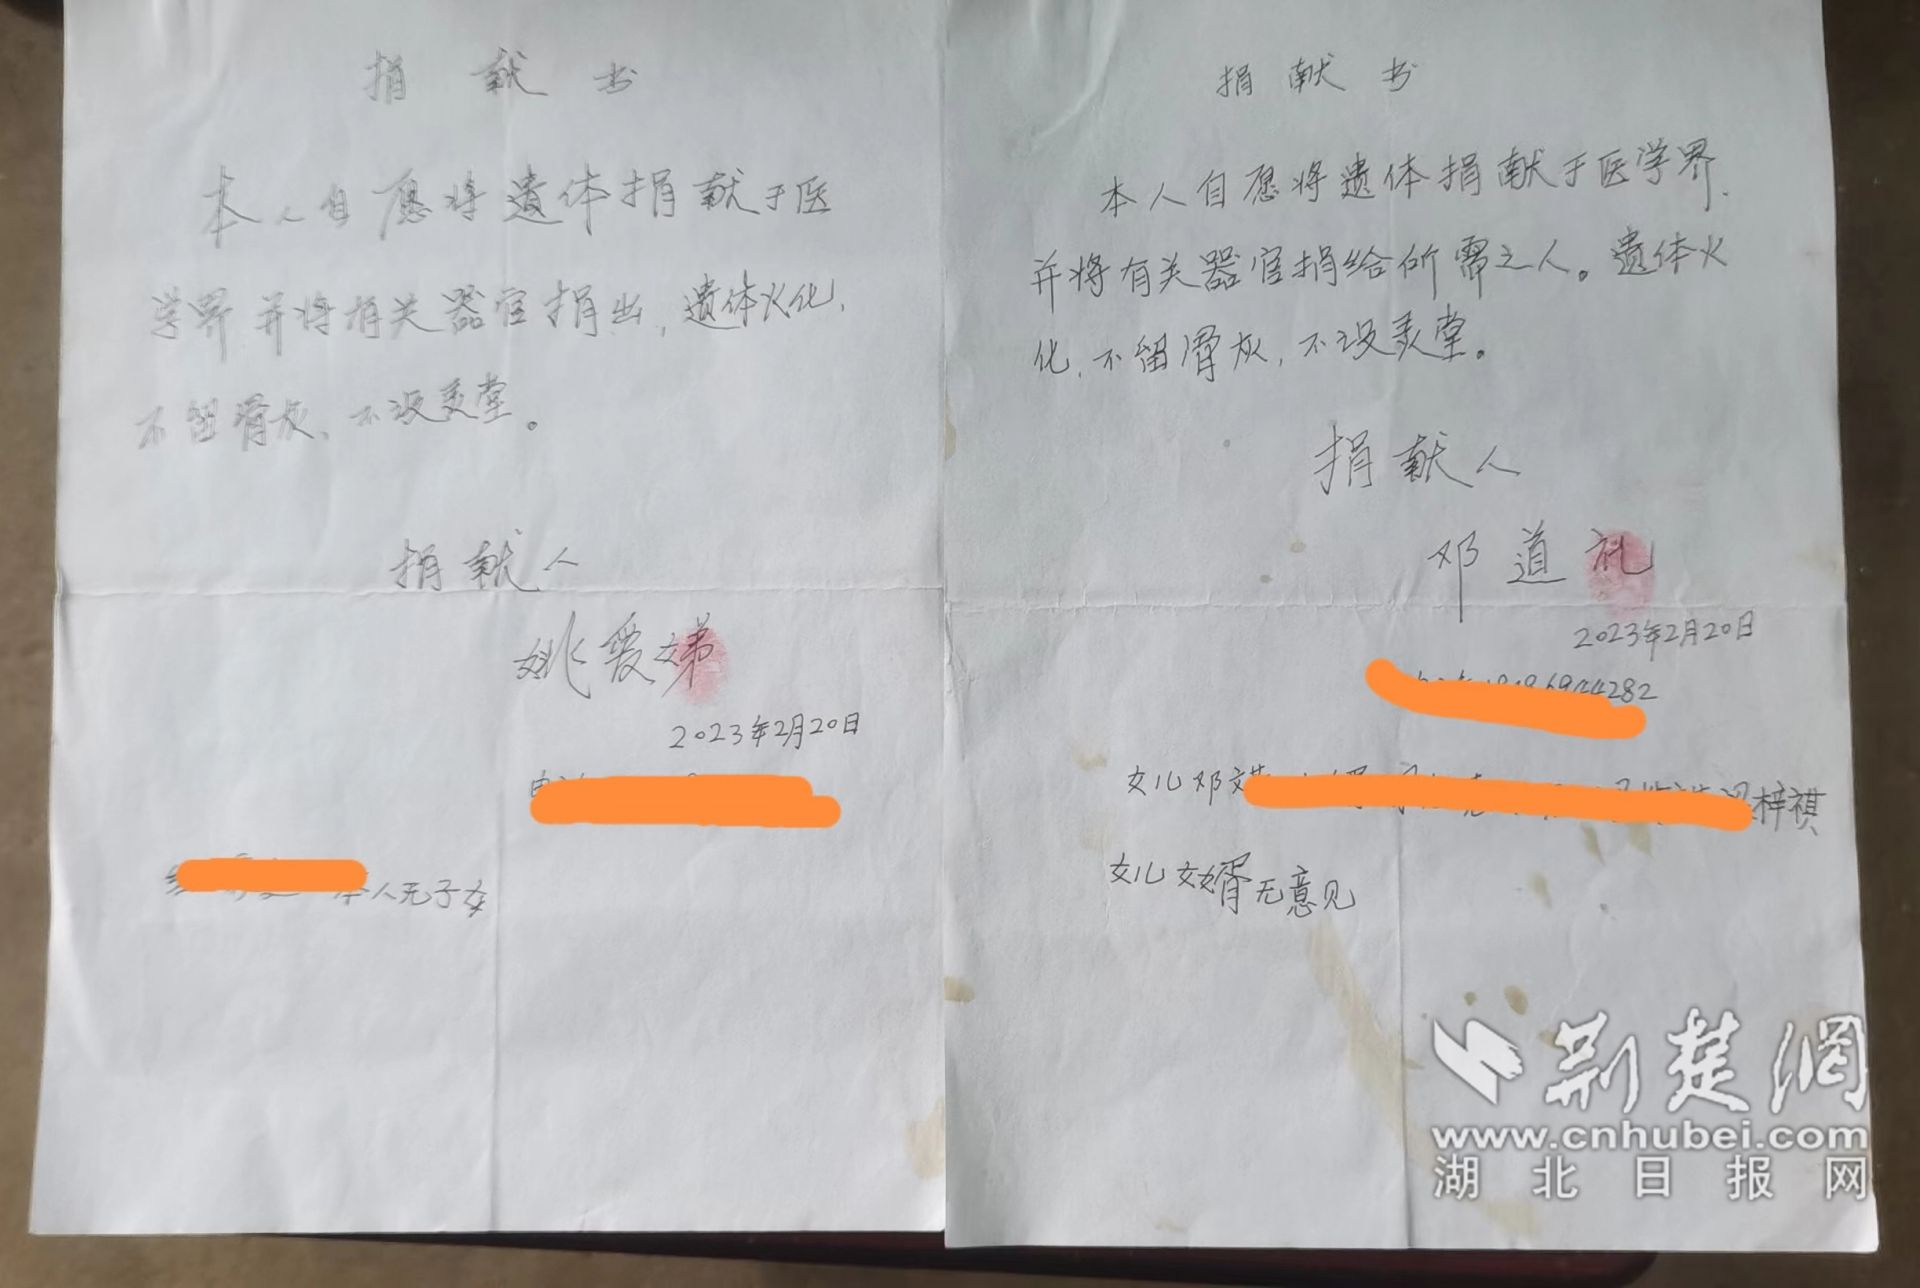 捐献书
本人自愿将遗体捐献于医
学界并将有关器官捐出,遗体火化,
不留骨灰、不设灵堂。
捐献人
姚爱娣
2023年2月20日
本人无子女
捐献书
本人自愿将遗体捐献于医学界.
并将有关器官捐给所需之人。遗体火
化,不留骨灰,不设灵堂。
捐献人
邓道礼
2023年2月20日
女儿邓
梓祺
女儿女婿无意见
荆楚网
www.cnhubei.com
湖北日报网